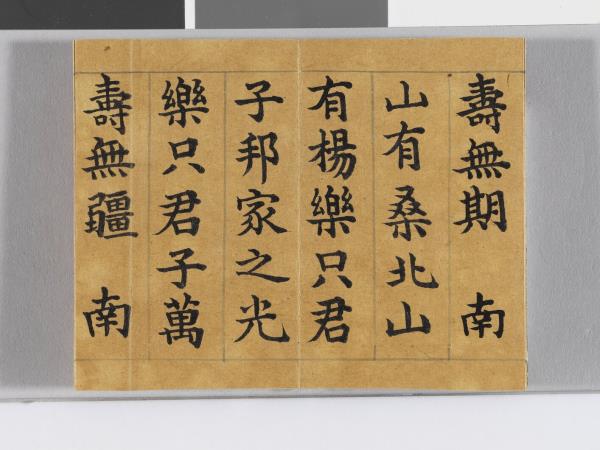 壽無期　南
山有桑北山
有楊樂只君
子邦家之光
樂只君子萬
壽無疆　南